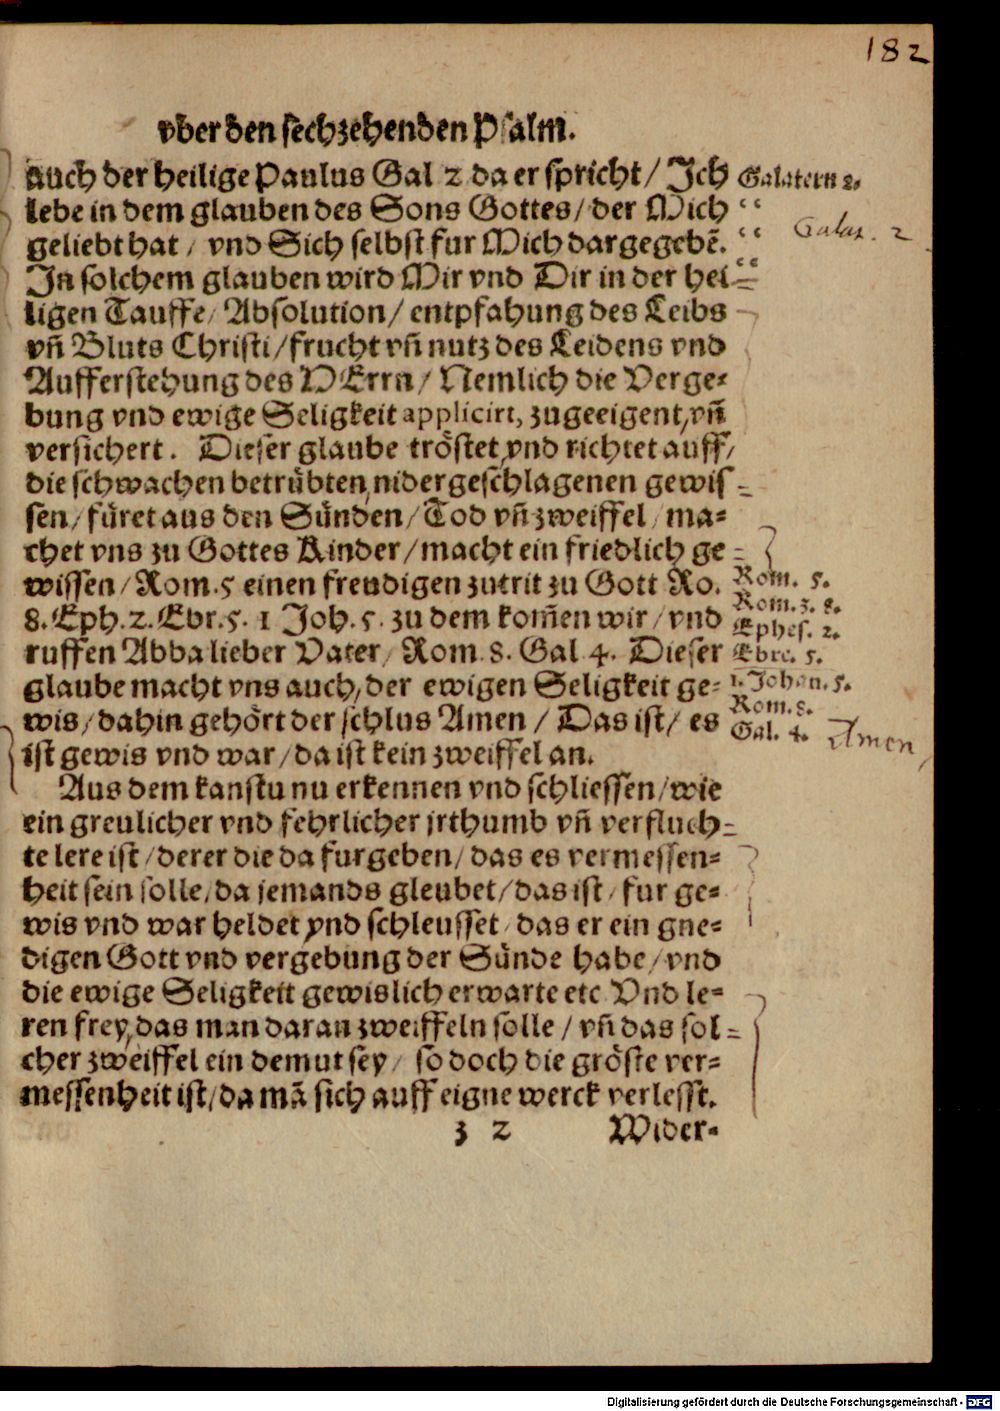 182
vber den sechzehenden Psalm.
auch der heilige Paulus Gal 2 da er spricht / Ich
lebe in dem glauben des Sons Gottes / der Mich
geliebt hat / vnd Sich selbst fur Mich dargegebẽ.
In solchem glauben wird Mir vnd Dir in der hei-
ligen Tauffe / Absolution / entpfahung des Leibs
vñ Bluts Christi / frucht vñ nutz des Leidens vnd
Aufferstehung des HErrn / Nemlich die Verge-
bung vnd ewige Seligkeit applicirt, zugeeigent, vñ
versichert. Dieser glaube tröstet, vnd richtet auff /
die schwachen betrübten, nidergeschlagenen gewis-
sen / füret aus den Sünden / Tod vñ zweiffel / ma-
chet vns zu Gottes Kinder / macht ein friedlich ge-
wissen / Rom. 5 einen freudigen zutrit zu Gott Ro.
8. Eph. 2. Ebr. 5. 1 Joh. 5. zu dem kom̃en wir / vnd
ruffen Abba lieber Vater / Rom. 8. Gal 4. Dieser
glaube macht vns auch, der ewigen Seligkeit ge-
wis / dahin gehört der schlus Amen / Das ist / es
ist gewis vnd war / da ist kein zweiffel an.
Aus dem kanstu nu erkennen vnd schliessen / wie
ein greulicher vnd fehrlicher jrthumb vñ verfluch-
te lere ist / derer die da furgeben / das es vermessen-
heit sein solle / da jemands gleubet / das ist / fur ge-
wis vnd war heldet, vnd schleusset / das er ein gne-
digen Gott vnd vergebung der Sünde habe / vnd
die ewige Seligkeit gewislich erwarte etc Vnd le-
ren frey, das man daran zweiffeln solle / vñ das sol-
cher zweiffel ein demut sey / so doch die gröste ver-
messenheit ist / da mã sich auff eigne werck verlesst.
z 2 Wider-
Galatern 2.
Galat. 2
Rom. 5.
Rom. 3. 8.
Ephes. 2.
Ebre. 5.
1. Johan. 5.
Rom. 8.
Gal. 4.
Amen
Digitalisierung gefördert durch die Deutsche Forschungsgemeinschaft - DFG